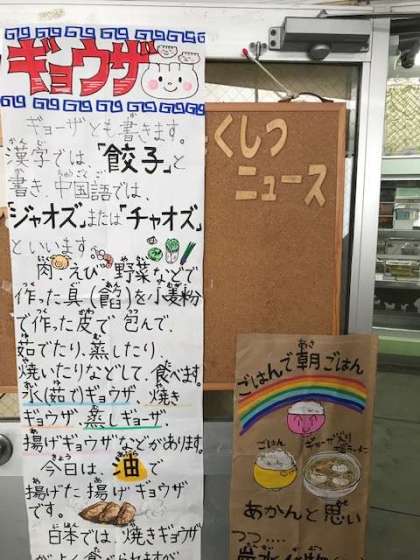 ギョウザ
ギョーザとも書きます。
漢字では、「餃子」と
書き、中国語では、
「ジャオズ」または「チャオズ」
といいます。
肉、えび、野菜などで
作った具(餡)を小麦粉
で作った皮で包んで、
茹でたり、蒸したり、
焼いたりなどして、食べます。
水(茹で)ギョウザ、焼き
ギョウザ、蒸しギョーザ、
揚げギョウザなどがあります。
今日は、油で
揚げた揚げギョウザ
です。
日本では、焼きギョウザ
がよく食べられますが
くしつ
ニュース
ごはんで朝ごはん
ごはん
あかんと思い
つつ....